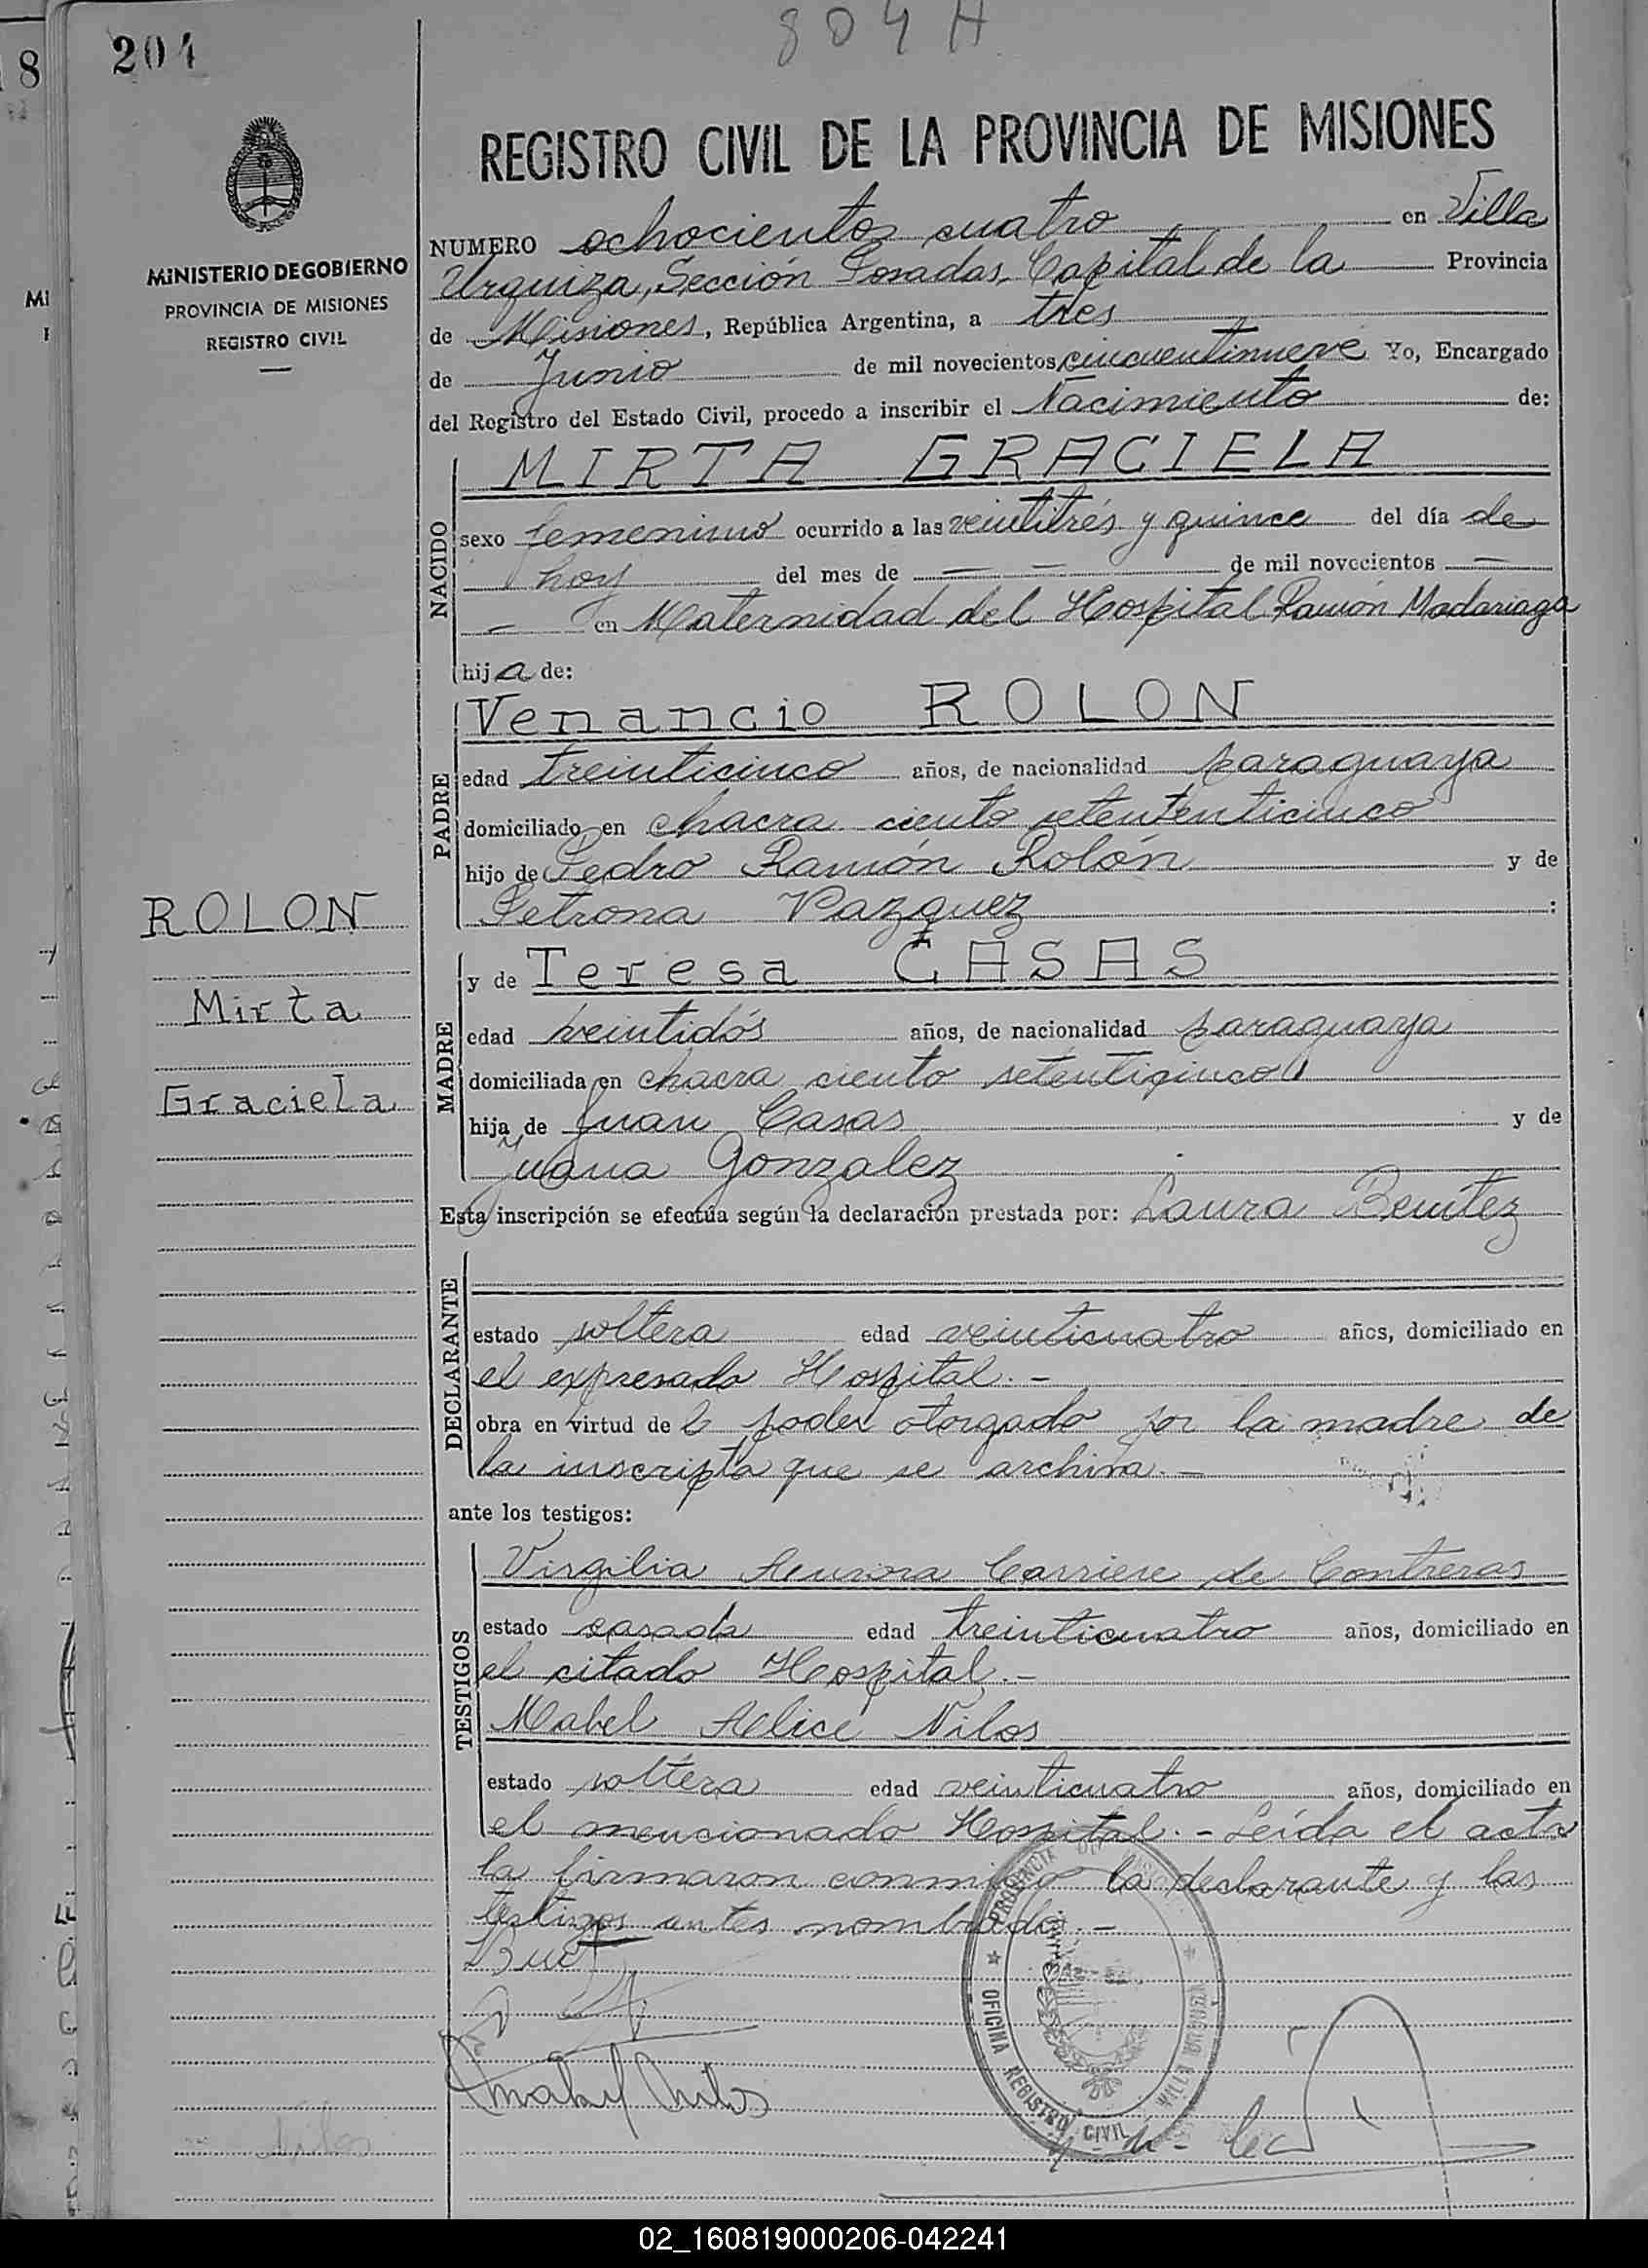 804 A
204
8
REGISTRO CIVIL DE LA PROVINCIA DE MISIONES
MINISTERIO DE GOBIERNO
PROVINCIA DE MISIONES
REGISTRO CIVIL
NUMERO ochocientos cuatro en Villa
Urquiza, Sección Posadas, Capital de la Provincia
de Misiones, República Argentina, a tres
de Junio de mil novecientos cincuentinueve Yo, Encargado
del Registro del Estado Civil, procedo a inscribir el Nacimiento de:
NACIDO
MIRTA GRACIELA
sexo femenino ocurrido a las veintitrés y quince del día de
hoy del mes de — — de mil novecientos —
— en Maternidad del Hospital Ramón Madariaga
hija de:
PADRE
Venancio ROLON
edad treinticinco años, de nacionalidad paraguaya
domiciliado en chacra ciento setententicinco
hijo de Pedro Ramón Rolón y de
Petrona Vazquez :
ROLON
Mirta
Graciela
MADRE
y de Teresa CASAS
edad veintidós años, de nacionalidad paraguaya
domiciliada en chacra ciento setenticinco
hija de Juan Casas y de
Juana Gonzalez
Esta inscripción se efectúa según la declaración prestada por: Laura Benítez
DECLARANTE
estado soltera edad veinticuatro años, domiciliado en
el expresado Hospital.-
obra en virtud de poder otorgado por la madre de
la inscripta que se archiva.-
ante los testigos:
TESTIGOS
Virgilia Aurora Carriere de Contreras
estado casada edad treinticuatro años, domiciliado en
el citado Hospital.-
Mabel Alice Nilos
estado soltera edad veinticuatro años, domiciliado en
el mencionado Hospital.- Leída el acta
la firmaron conmigo la declarante y las
testigos antes nombrado.-
PROVINCIA DE
OFICINA REGISTRO CIVIL
VILLA URQUIZA
02_160819000206-042241